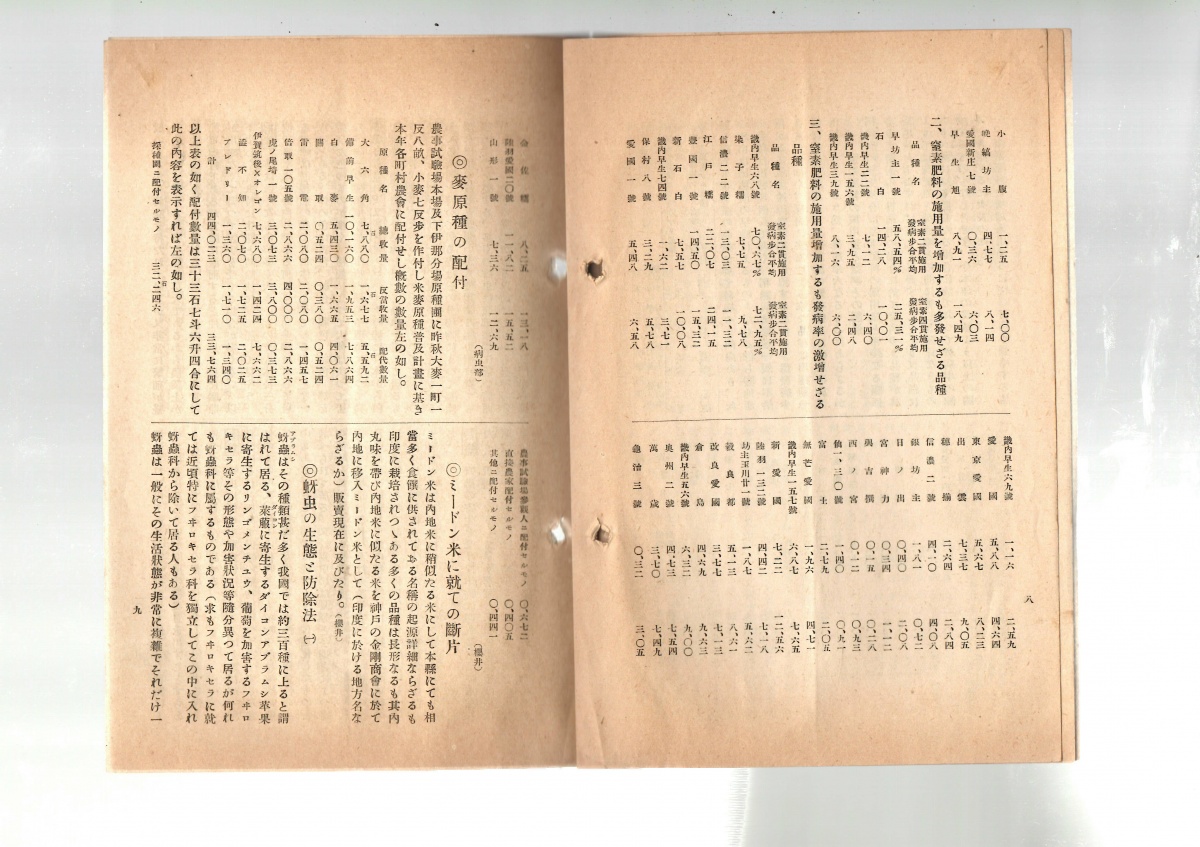 小腹 一、二五 七、〇〇
晩稿坊主 四、七七 八、一四
愛國新庄七號 〇、三六 六、〇三
早生旭 八、九一 一八、四九
二、窒素肥料の施用量を增加するも多發せざる品種
品種名 窒素二貫施用發病步合平均 窒素四貫施用發病步合平均
早坊主一號 五八、五四% 二五、三一%
石白 一四、二八 一〇、〇〇
畿內早生二二號 七、一二 六、四〇
畿內早生一五六號 三、九五 二、四八
畿內早生三九號 八、一六 六、〇〇
三、窒素肥料の施用量增加するも發病率の激增せざる
品種
品種名 窒素二貫施用發病步合平均 窒素四貫施用發病步合平均
畿內早生六八號 七〇、六七% 七二、九五%
染子糯 七、七五 九、七八
信濃二糯 一三、〇三 一一、三二
江戶糯 二二、〇七 二四、一五
豊國一號 一四、五〇 一五、三二
新石白 七、五七 一〇、〇八
畿內早生七四號 一、六二 三、七一
保村八號 三、二九 五、七八
愛國一號 五、四八 六、五八
畿內早生六九號 一、一六 二、五九
愛國 五、八八 四、六四
東京愛國 五、六七 八、二三
出雲 七、三七 九、〇五
穗揃 一、二六 二、八四
信濃二號 四、〇〇 四、〇八
銀坊主 一、八一 〇、七二
日ノ出 〇、四〇 二、〇一
宮神力 〇、三四 一、一二
與吉撰 〇、一五 〇、二八
西ノ宮 一、四〇 〇、九一
仙一、三〇 〇、一二 〇、九三
富士 二、七九 二、〇五
無芒愛國 三、〇九 四、七一
畿內早生一五七號 六、八七 七、六五
新愛國 七、二二 一二、五六
陸羽一三二號 四、四二 七、一八
坊主玉川廿一號 一、八七 五、六二
穀良都 五、一三 八、六一
改良愛國 三、六三 七、一三
倉島 六、六九 九、〇〇
畿內早生五六號 六、三二 四、七八
奥州二號 四、七三 七、五四
萬歳 三、七〇 七、四九
龜治三號 〇、三二 三、〇五
八
金佳糯 八、二五 一三、一八
陸羽愛國二〇號 一一、八二 一五、五二
山形一號 七、三六 一二、六九
(病虫部)
◎麥原種の配付
農事試驗場本場及下伊那分場原種圃に昨秋大麥一町一
反八畝、小麥七反步を作付し米麥原種普及計畫に基き
本年各町村農會に配付せし槪數の數量左の如し。
原種名 總收量 反當收量 配代數量
大六角 七、八八〇石 一、六七七石 五、五九二石
備前早生 一〇、一六〇 一、九五三 七、八六四
白麥 五、四三〇 一、六六五 四、〇六一
雷電 二、〇八〇 二、〇八〇 一、四五七
關取 〇、五二四 〇、三八〇 〇、五二四
倍取一〇五號 二、八六六 四、〇〇〇 二、八六六
虎ノ尾埼一號 三、〇七三 三、八〇〇 〇、三七三
伊賀筑後×オレゴン 七、六八〇 一、四二四 七、六六二
澁不知 二、〇七〇 一、七二五 二、〇二五
フレドリー 一、三六〇 一、七一〇 一、三四〇
計 四四、〇二三 三三、七六四
以上表の如く配付數量は三十三石七斗六升四合にして
此の內容を表示すれば左の如し。
採種圃ニ配付セルモノ 三二、二四六石
農事試驗場參觀人ニ配付セルモノ 〇、六七二
直接農家配付セルモノ 〇、四〇五
其他ニ配付セルモノ 〇、四四一
(櫻井)
◎ミードン米に就ての斷片
ミードン米は內地米に稍似たる米にして本縣にても相
當多く食膳に供されてある名稱の起源詳細ならざるも
印度に栽培されつゝある多くの品種は長形なるも其內
丸味を帶び內地米に似たる米を神戶の金剛商會に於て
內地に移入ミードン米として(印度に於ける地方名な
らざるか)販賣現在に及びたり。(櫻井)
◎蚜虫の生態と防除法(一)
蚜蟲はその種類甚だ多く我國では約三百種に上ると謂
はれて居る、菜菔に寄生するダイコンアブラムシ苹果
に寄生するリンゴメンチュウ、葡萄を加害するフヰロ
キセラ等その形態や加害狀況等隨分異つて居るが何れ
も蚜蟲科に屬するものである(求もフヰロキセラに就
ては近頃特にフヰロキセラ科を獨立してこの中に入れ
蚜蟲科から除いて居る人もある)
蚜蟲は一般にその生活狀態が非常に複雜でそれだけ一
九